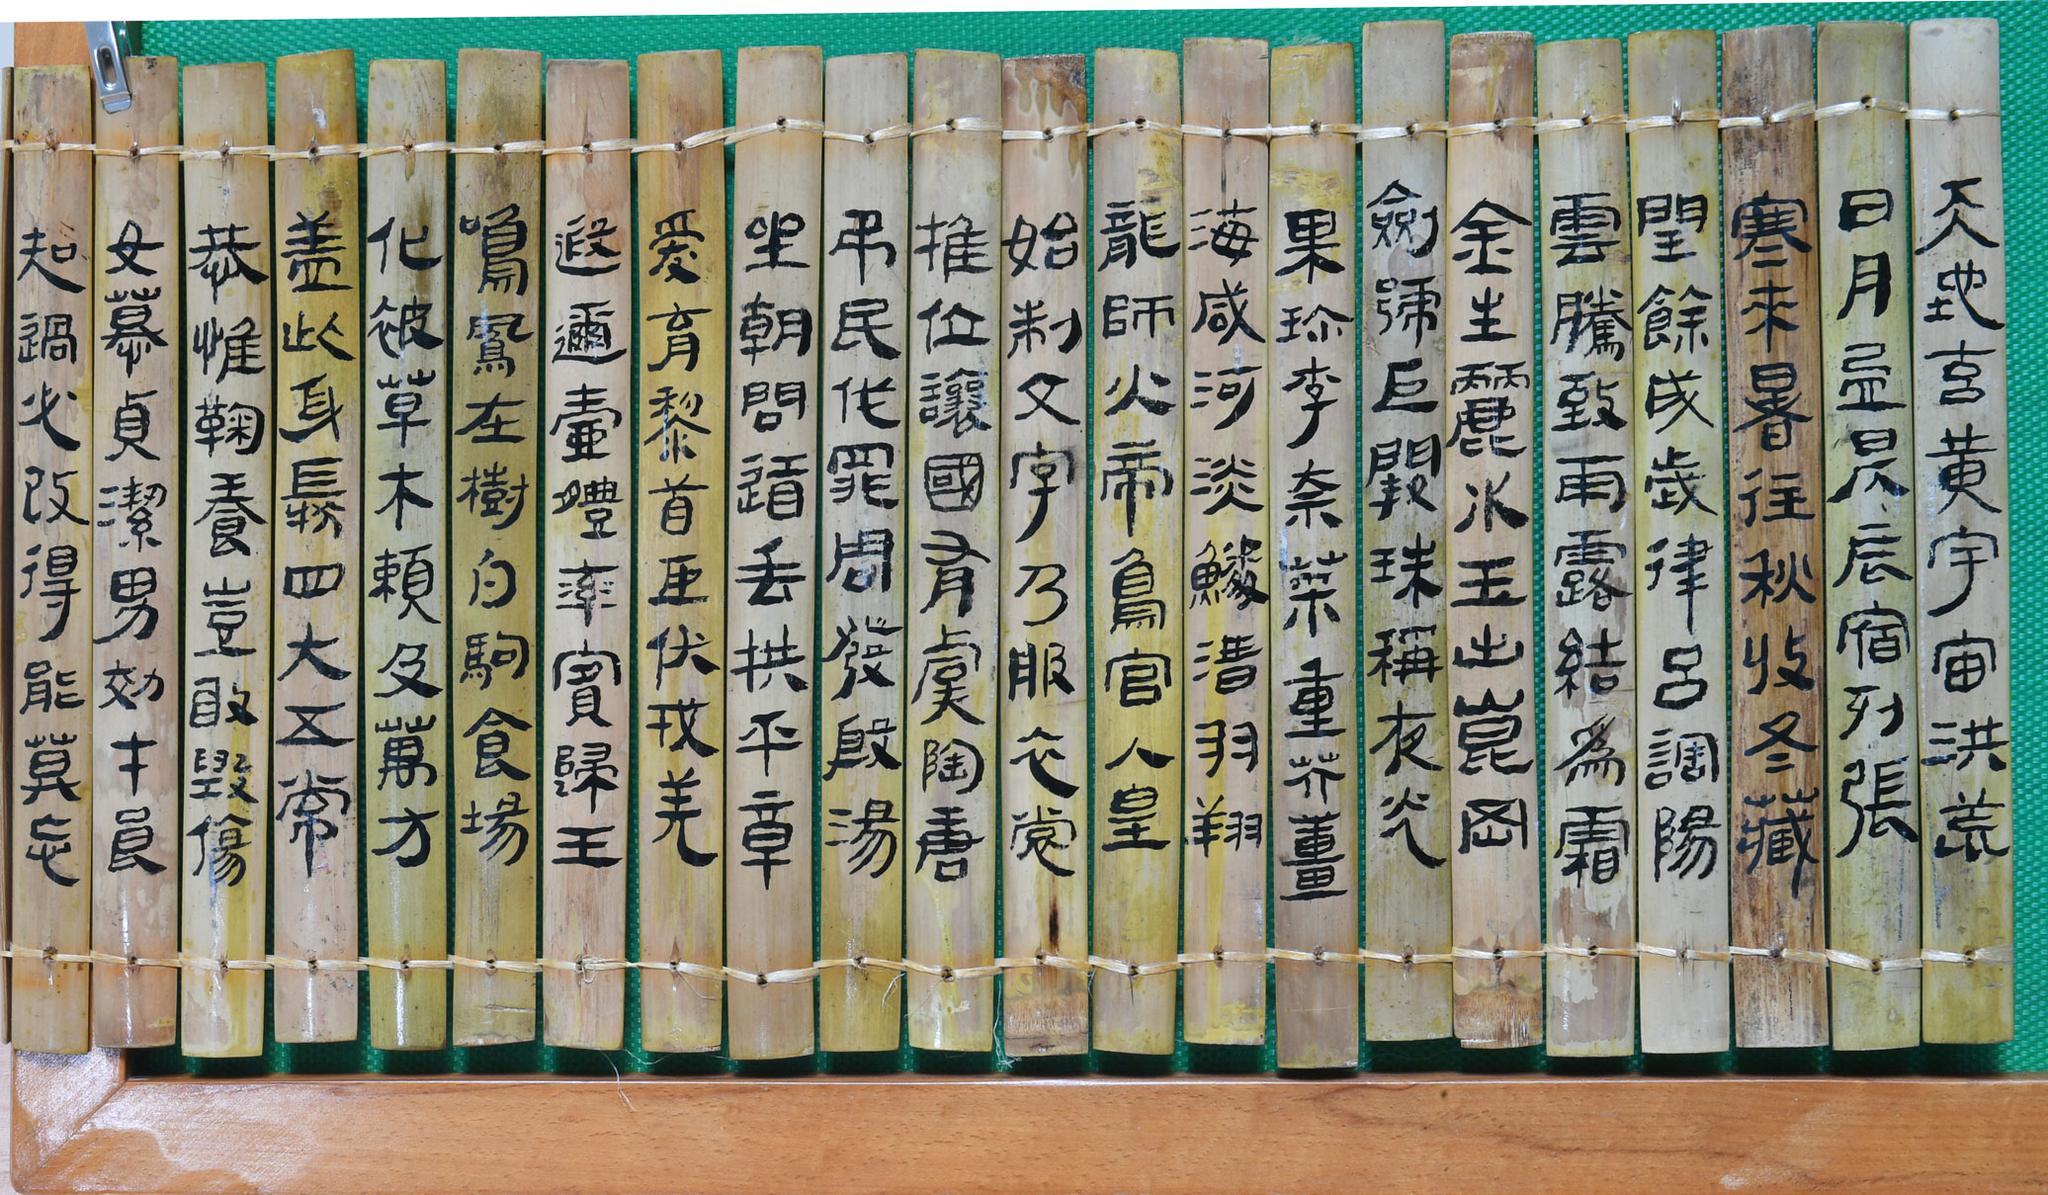 天地玄黃宇宙洪荒
日月盈昃辰宿列張
寒來暑往秋收冬藏
閏餘成歲律呂調陽
雲騰致雨露結為霜
金生麗水玉出崑岡
劍號巨闕珠稱夜光
果珍李柰菜重芥薑
海咸河淡鱗潛羽翔
龍師火帝鳥官人皇
始制文字乃服衣裳
推位讓國有虞陶唐
弔民伐罪周發殷湯
坐朝問道垂拱平章
愛育黎首臣伏戎羌
遐邇壹體率賓歸王
鳴鳳在樹白駒食場
化被草木賴及萬方
盖此身髮四大五常
恭惟鞠養豈敢毀傷
女慕貞潔男効才良
知過必改得能莫忘